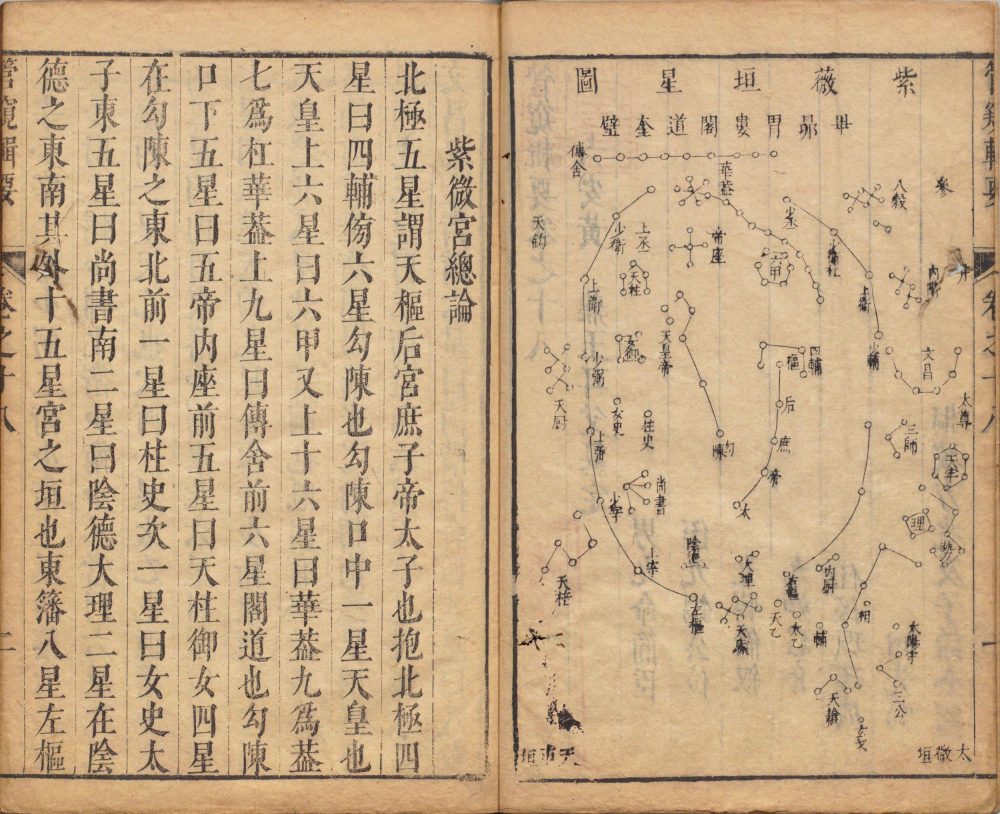 紫薇垣星圖
畢昴胃婁閣道奎壁
參
井
傳舍
華蓋
八穀
天鈎
少衛
上丞
帝座
六甲
少丞
少衛
上衛
內階
天柱
上衛
天皇帝
四輔
樞
少輔
文昌
太尊
少弼
天厨
女史
柱史
后
庶
三師
天牢
上弼
勾
陳
帝
尚書
少宰
太
理
勢
上宰
陰德
天棓
大理
右樞
內厨
左樞
天床
天乙
太乙
輔
相
太陽守
三公
天槍
天市垣
太微垣
管窺輯要
卷之十八
一
紫微宮總論
北極五星謂天樞后宮庶子帝太子也抱北極四
星曰四輔傍六星勾陳也勾陳口中一星天皇也
天皇上六星曰六甲又上十六星曰華蓋九爲蓋
七爲杠華蓋上九星曰傳舍前六星閣道也勾陳
口下五星曰五帝内座前五星曰天柱御女四星
在勾陳之東北前一星曰柱史次一星曰女史太
子東五星曰尚書南二星曰陰德大理二星在陰
德之東南其外十五星宮之垣也東籓八星左樞
管窺輯要
卷之十八
二